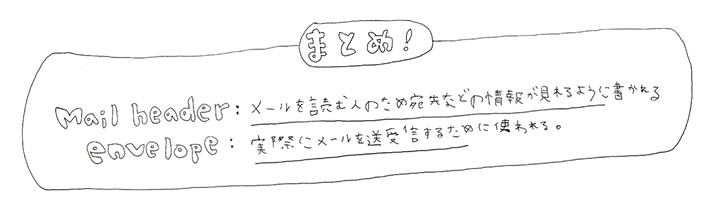 まとめ!
Mail header: メールを読む人のため宛先などの情報が見れるように書かれる
envelope: 実際にメールを送受信するために使われる。